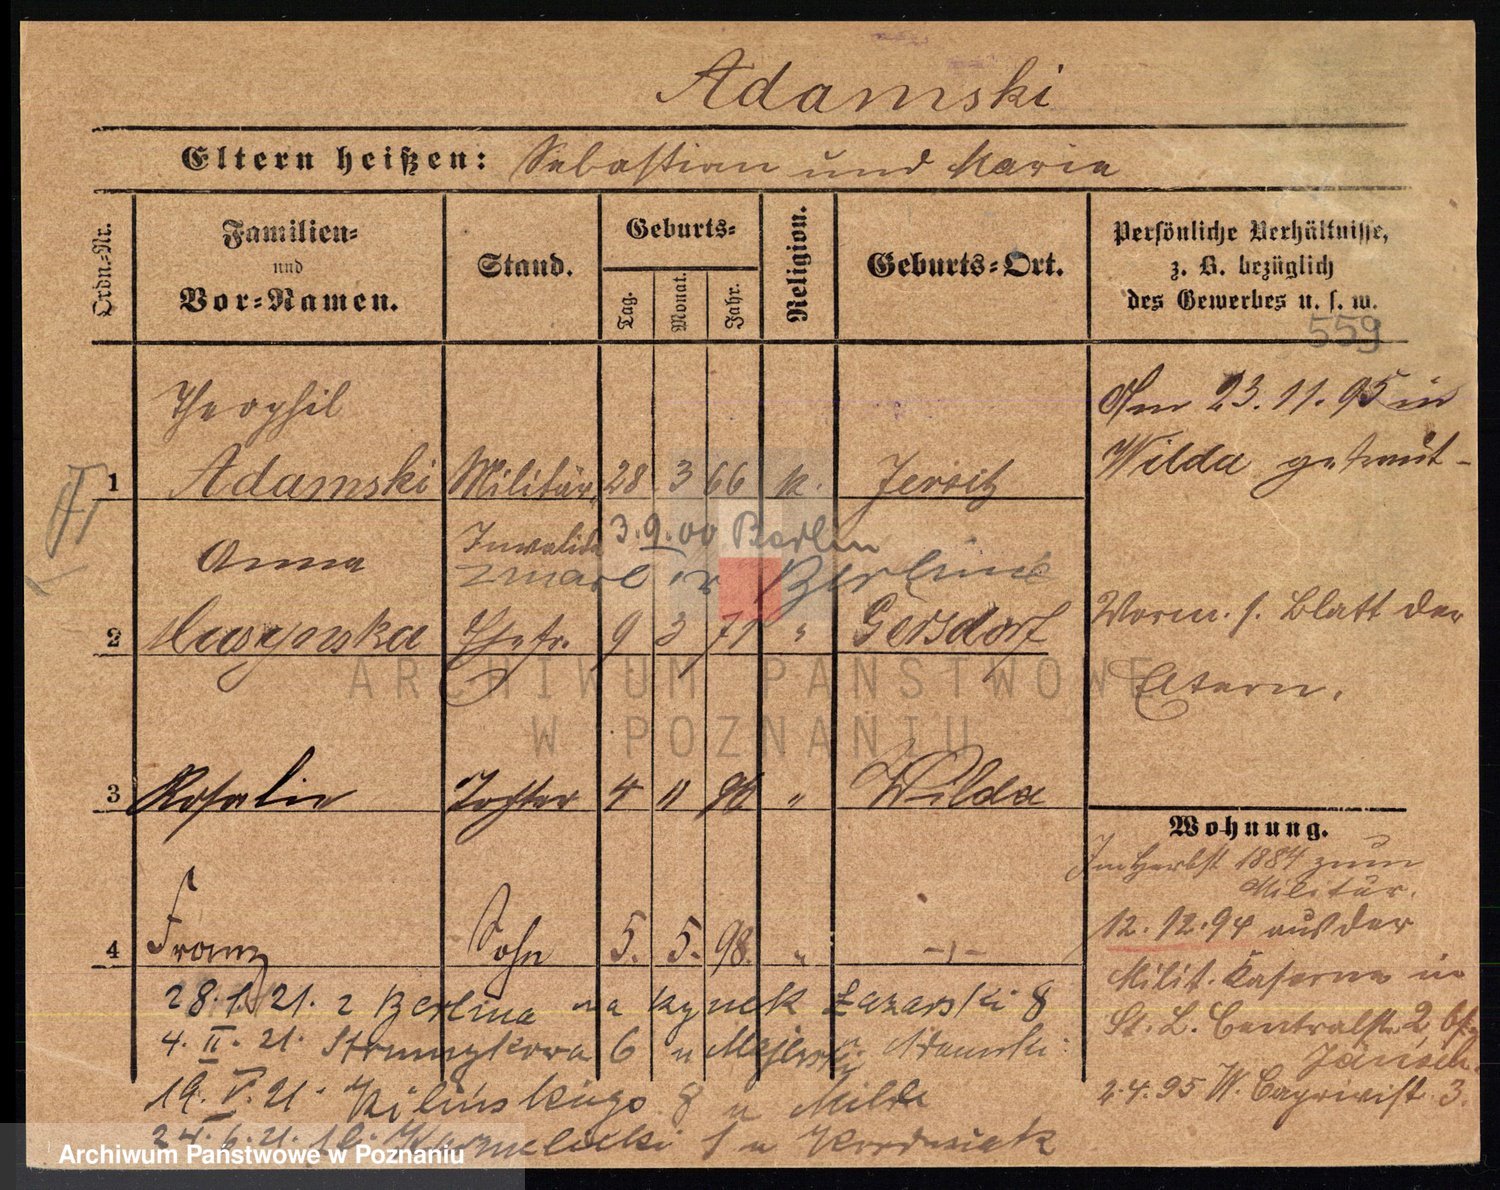 Adamski
Eltern heißen: Sebastian und Maria
Ordn.-Nr.
Familien-
und
Vor-Namen.
Stand.
Geburts-
Tag.
Monat.
Jahr.
Religion.
Geburts-Ort.
Persönliche Verhältnisse,
z. B. bezüglich
des Gewerbes u. s. w.
559
Theophil
1 Adamski Militär 28 3 66 k. Jersitz
Invalide 3.9.00 Berlin
zmarł w Berlinie
Anna
2 Ehefr. 9 3 71 " Gersdorf
3 Rosalie Tochter 4 11 96 " Wilda
4 Franz Sohn 5. 5. 98. " -"-
Am 23.11.95 in
Wilda getraut-
Vorm. s. Blatt der
Eltern.
Wohnung.
Im Herbst 1884 zum
Militär.
12.12.94 aus der
Milit. Kaserne in
St. L. Centralstr. 2 bei
2.4.95 W. Caprivistr. 3.
28.1.21. z Berlina na Rynek Łazarski 8
4. II. 21. Strumykowa 6 u Adamski
19. V. 21. Kilińskiego 8 u
24. 6. 21. 1 u
ARCHIWUM PAŃSTWOWE
W POZNANIU
Archiwum Państwowe w Poznaniu